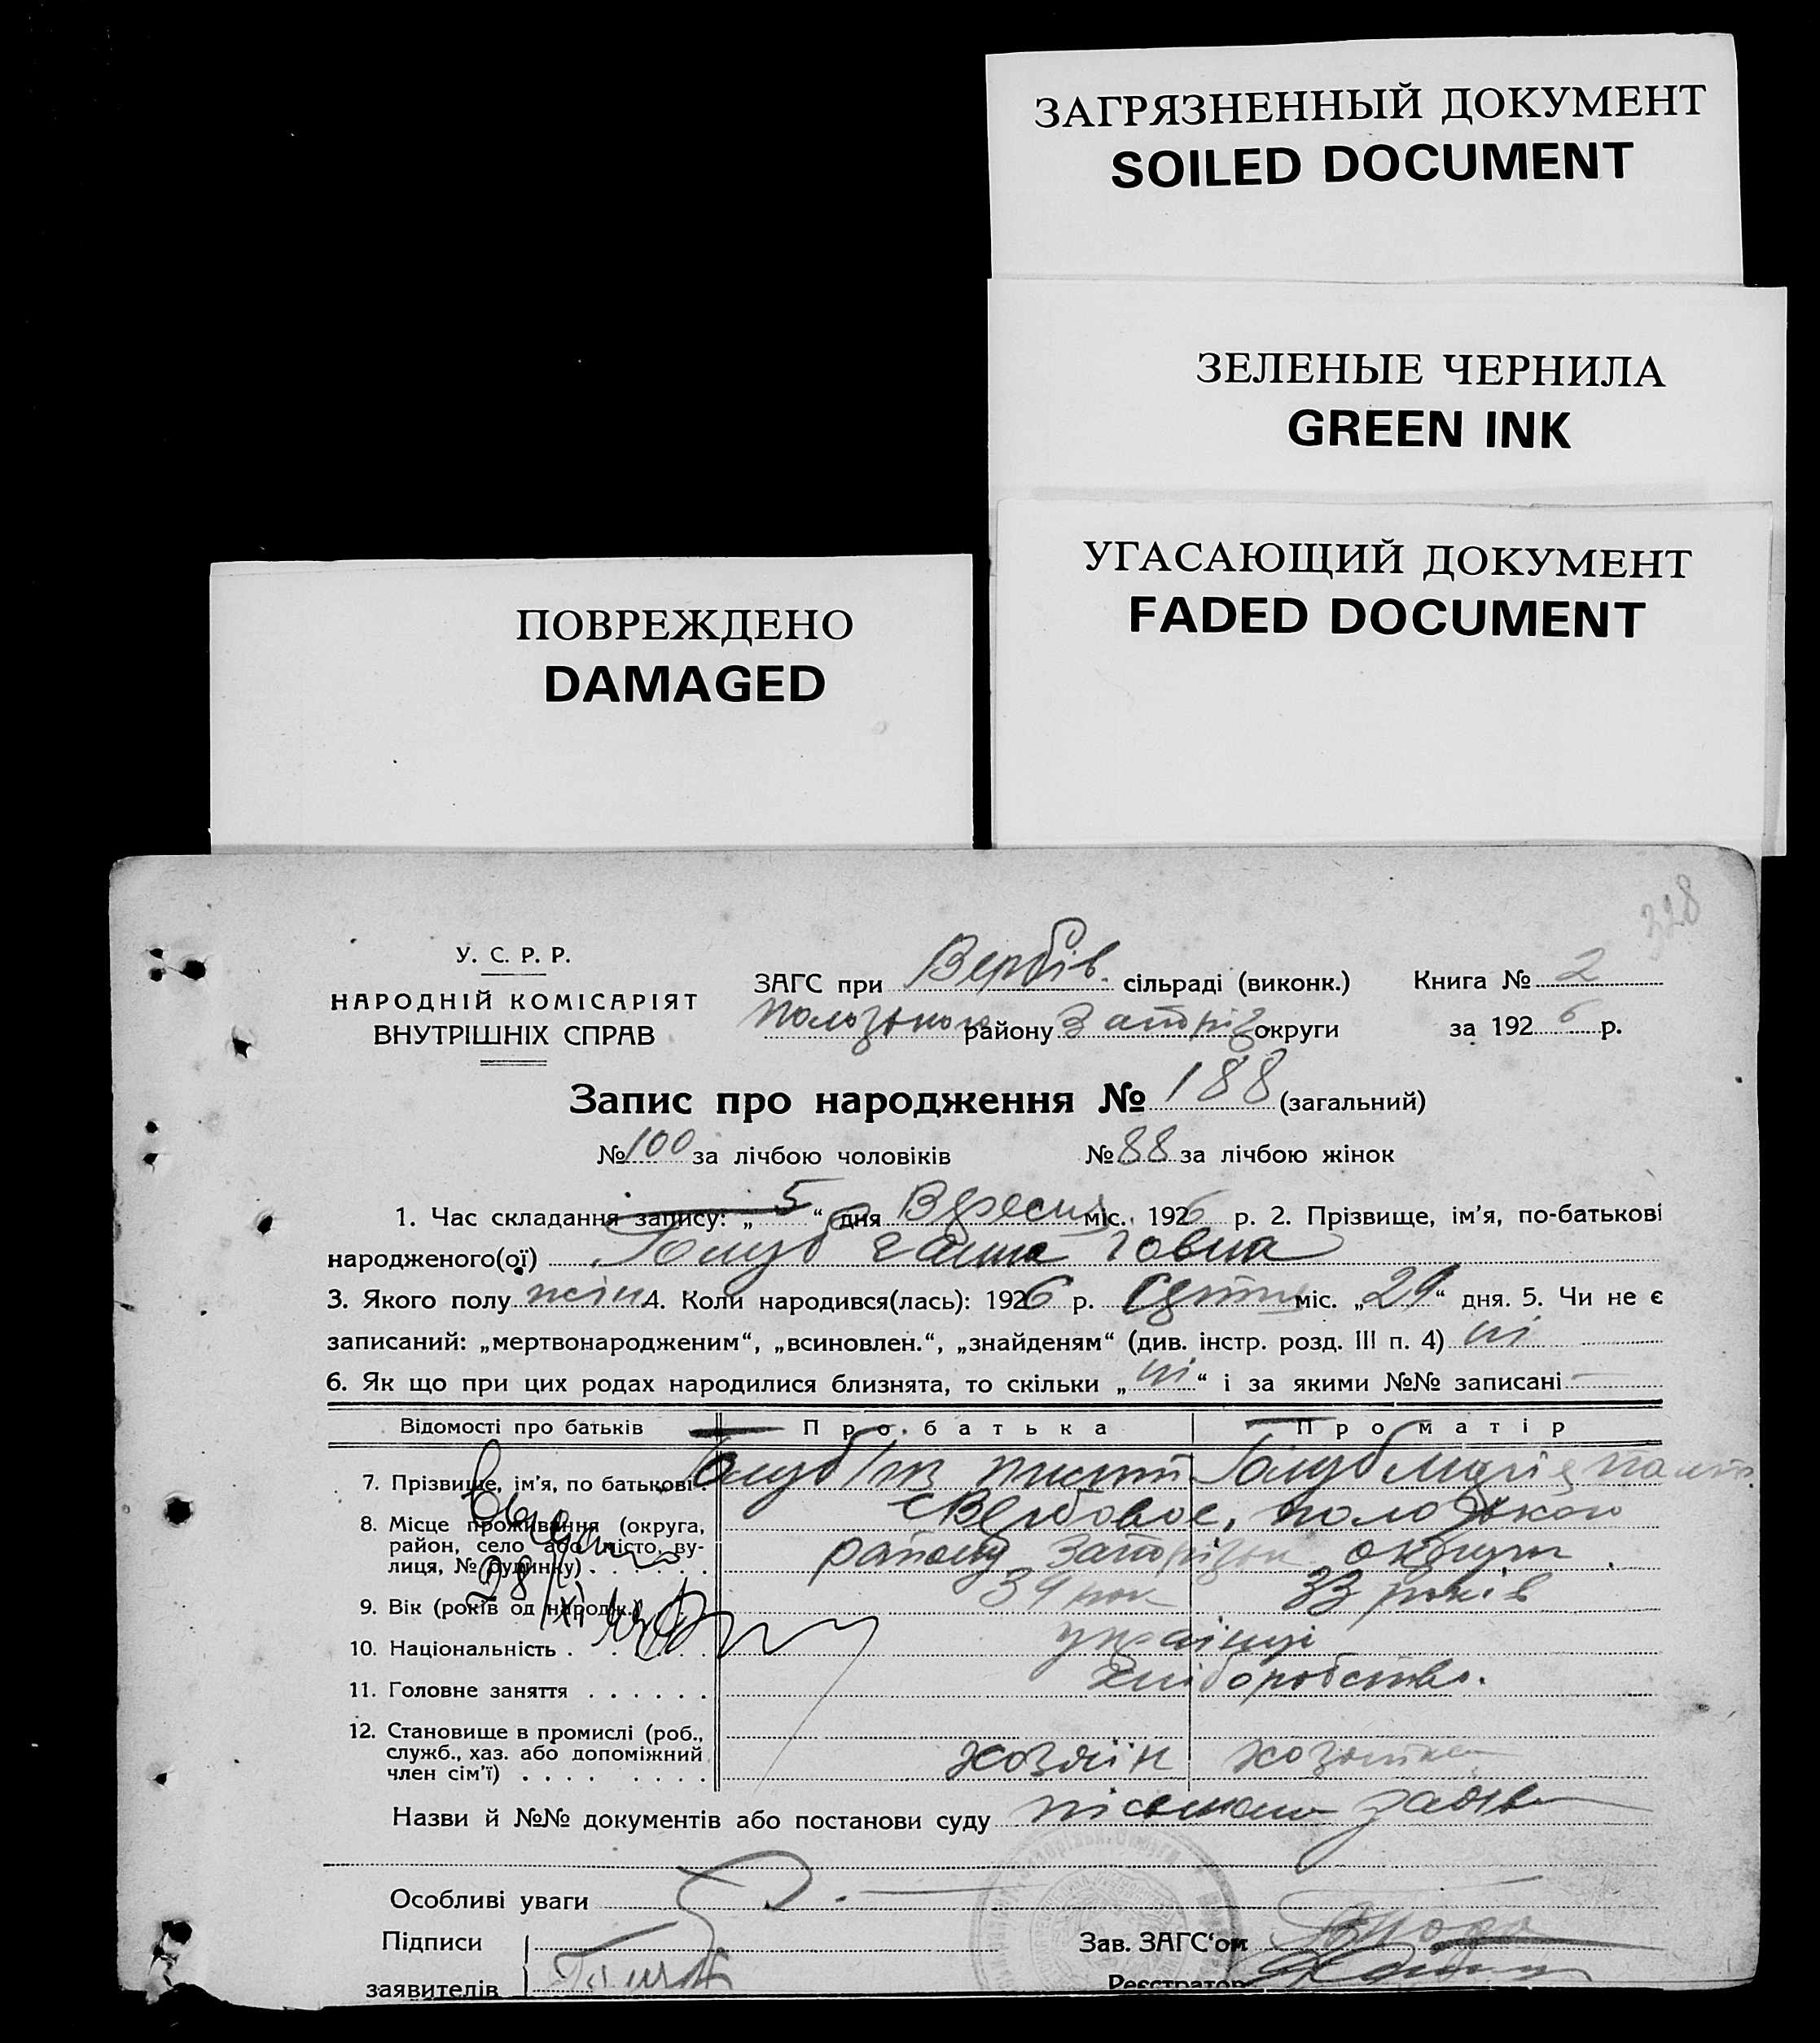 ЗАГРЯЗНЕННЫЙ ДОКУМЕНТ
SOILED DOCUMENT
ЗЕЛЕНЫЕ ЧЕРНИЛА
GREEN INK
УГАСАЮЩИЙ ДОКУМЕНТ
FADED DOCUMENT
ПОВРЕЖДЕНО
DAMAGED
328
У. С. Р. Р.
НАРОДНІЙ КОМІСАРІЯТ
ВНУТРІШНІХ СПРАВ
ЗАГС при Вербів. сільраді (виконк.) Книга № 2
Пологського району Запоріз. округи за 1926 р.
Запис про народження № 188 (загальний)
№ 100 за лічбою чоловіків № 88 за лічбою жінок
1. Час складання запису: „5“ дня Вересня міс. 1926 р. 2. Прізвище, ім’я, по-батькові
народженого(ої) Голуб Ганна Іовна
3. Якого полу жін 4. Коли народився(лась): 1926 р. міс. „29“ дня. 5. Чи не є
записаний: „мертвонародженим“, „всиновлен.“, „знайденям“ (див. інстр. розд. III п. 4) ні
6. Як що при цих родах народилися близнята, то скільки „ні“ і за якими №№ записані —
Відомості про батьків Про батька Про матір
7. Прізвище, ім’я, по батькові. Голуб Голуб Марія
8. Місце проживання (округа, район, село або місто, вулиця, № будинку) с Вербове, пологського
району Запорізьк округи.
9. Вік (років од народж.) 34 рок 33 років
28/XI
10. Національність українці
11. Головне заняття хліборобство.
12. Становище в промислі (роб.,
служб., хаз. або допоміжний
член сім’ї) хозяїн хозяйка
Назви й №№ документів або постанови суду письмана заява
Особливі уваги
Підписи Зав. ЗАГС‘ом
заявителів Реєстратор